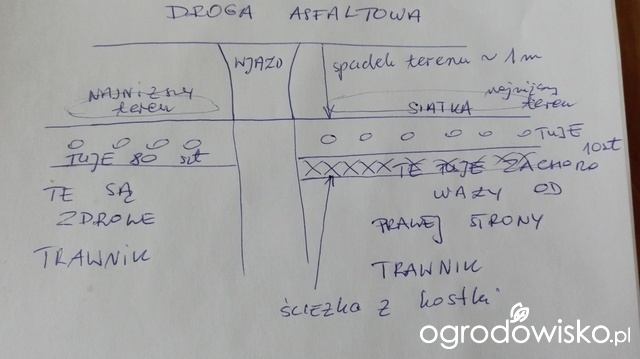 DROGA ASFALTOWA
WJAZD
spadek terenu ~ 1m
NAJNIŻSZY
teren
SIATKA
najniższy
teren
TUJE 80 szt
TUJE
10szt
TE TUJE ZACHORO
WAŻY OD
PRAWEJ STRONY
TE SĄ
ZDROWE
TRAWNIK
TRAWNIK
ŚCIEŻKA Z kostki
ogrodowisko.pl